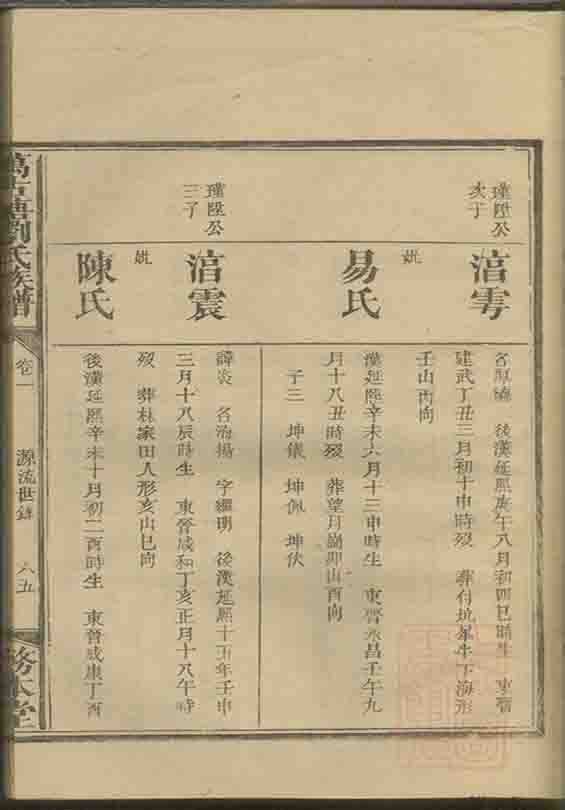 瑾陞公
次子
湆雩
名
後漢延熙庚午八月初四巳時生 東晉
建武丁丑三月初十申時歿 葬付坑犀牛下海形
壬山丙向
妣
易氏
漢延熙辛未六月十三申時生 東晉永昌壬午九
月十八丑時歿 葬望月崗卯山酉向
子三 坤儀 坤佩 坤伏
瑾陞公
三子
湆震
諱炎 名治揚 字繼明 後漢延熙十五年壬申
三月十八辰時生 東晉咸和丁亥正月十八午時
歿 葬杜家田人形亥山巳向
妣
陳氏
後漢延熙辛未十月初二酉時生 東晉咸康丁酉
萬古塘劉氏族譜
卷一
源流世錄
六五
務本堂